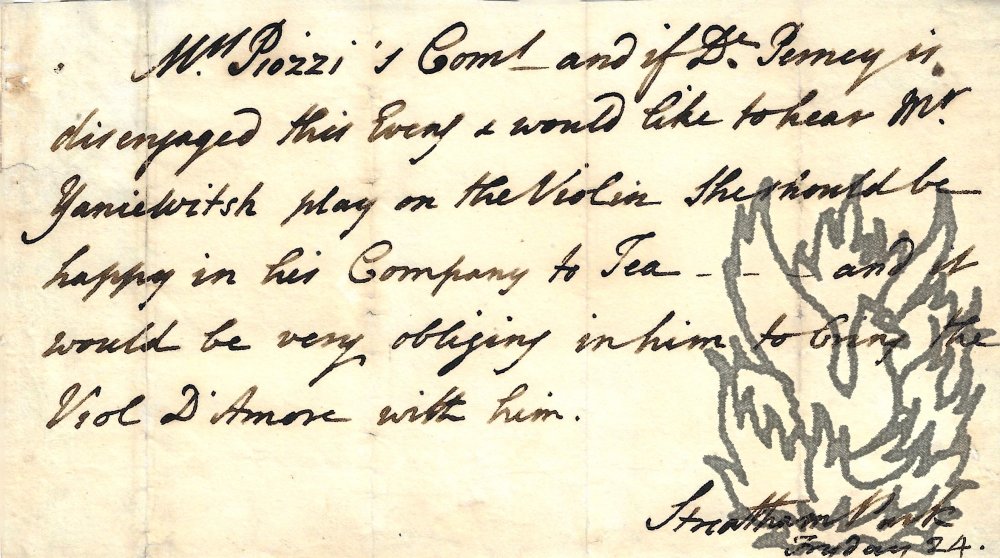 Mrs. Piozzi's Comts and if Dr. Perney is
disengaged this Eveng & would like to hear Mr.
Yaniewitsh play on the Violin She should be
happy in his Company to Tea - - - and it
would be very obliging in him to bring the
Viol D'Amore with him.
Streatham Park
24.